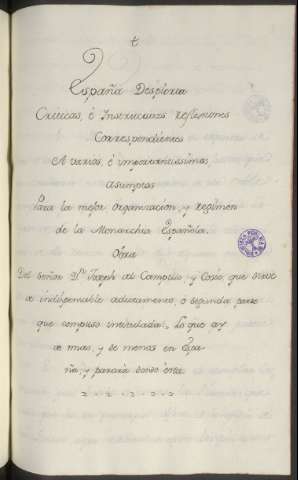 t
España Despierta
Criticas, è Instructivas reflexiones
Correspondientes
A varios, è importantissimos
asumptos
Para la mejor organizacion, y regimen
de la Monarchia Española.
Obra
Del Señor Dn. Joseph del Campillo, y Cosio, que sirve
de indispensable aditamento, ò segunda parte
que compuso intitulada: Lo que ay
de mas, y de menos en Espa-
ña, y pararà donde está.